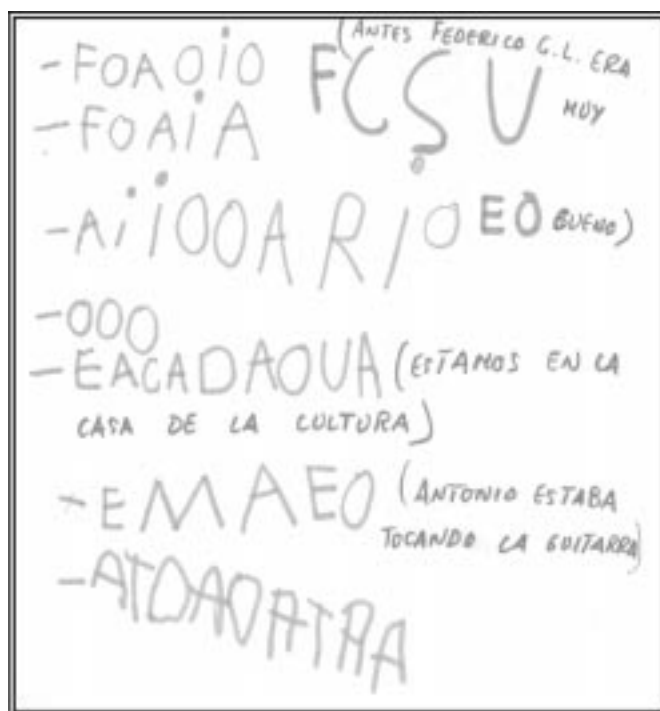 -FOAOiO FCŞU (ANTES FEDERICO G.L. ERA
-FOAiA MUY
-AiiOOARIO EO BUENO)
-OOO
-EACADAOUA (ESTAMOS EN LA
CASA DE LA CULTURA)
-EMAEO (ANTONIO ESTABA
TOCANDO LA GUITARRA)
-ATOAOATRA